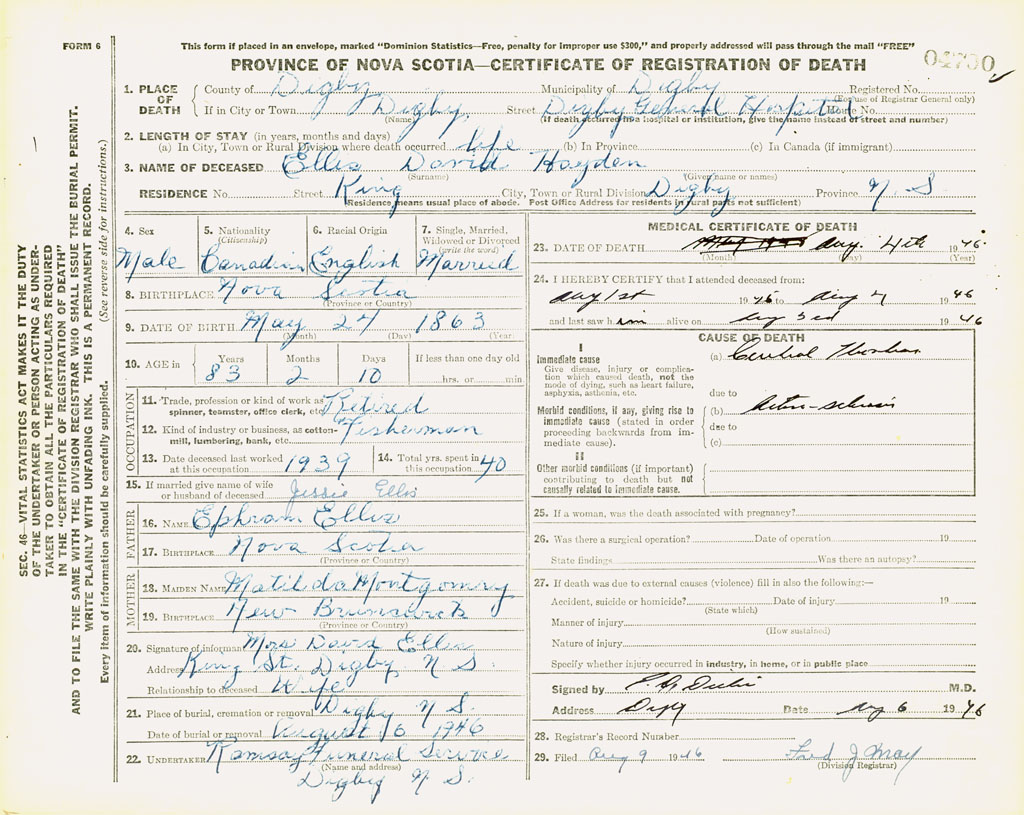 FORM 6
This form if placed in an envelope, marked "Dominion Statistics—Free, penalty for improper use $300," and properly addressed will pass through the mail "FREE"
PROVINCE OF NOVA SCOTIA—CERTIFICATE OF REGISTRATION OF DEATH
04730
SEC. 46—VITAL STATISTICS ACT MAKES IT THE DUTY
OF THE UNDERTAKER OR PERSON ACTING AS UNDER-
TAKER TO OBTAIN ALL THE PARTICULARS REQUIRED
IN THE "CERTIFICATE OF REGISTRATION OF DEATH"
AND TO FILE THE SAME WITH THE DIVISION REGISTRAR WHO SHALL ISSUE THE BURIAL PERMIT.
WRITE PLAINLY WITH UNFADING INK. THIS IS A PERMANENT RECORD.
Every item of information should be carefully supplied. (See reverse side for instructions.)
1. PLACE OF DEATH County of Digby Municipality of Digby Registered No.
(For use of Registrar General only)
If in City or Town Digby, Street Digby General Hospital House No.
(Name) (If death occurred in a hospital or institution, give the name instead of street and number)
2. LENGTH OF STAY (in years, months and days)
(a) In City, Town or Rural Division where death occurred life (b) In Province (c) In Canada (if immigrant)
3. NAME OF DECEASED Ellis David Hayden
(Surname) (Given name or names)
RESIDENCE No. Street King City, Town or Rural Division Digby Province N. S
(Residence means usual place of abode. Post Office Address for residents in rural parts not sufficient)
4. Sex Male
5. Nationality (Citizenship) Canadian
6. Racial Origin English
7. Single, Married, Widowed or Divorced (write the word) Married
8. BIRTHPLACE Nova Scotia
(Province or Country)
9. DATE OF BIRTH May 24 1863
(Month) (Day) (Year)
10. AGE in Years 83 Months 2 Days 10 If less than one day old hrs. or min.
OCCUPATION
11. Trade, profession or kind of work as spinner, teamster, office clerk, etc. Retired
12. Kind of industry or business, as cotton-mill, lumbering, bank, etc. Fisherman
13. Date deceased last worked at this occupation 1939
14. Total yrs. spent in this occupation 40
15. If married give name of wife or husband of deceased Jessie Ellis
FATHER
16. NAME Ephram Ellis
17. BIRTHPLACE Nova Scotia
MOTHER
18. MAIDEN NAME Matilda Montgomry
19. BIRTHPLACE New Brunswick
(Province or Country)
20. Signature of informant Mrs David Ellis
Address King St. Digby N S.
Relationship to deceased Wife
21. Place of burial, cremation or removal Digby N S.
Date of burial or removal August 6 1946
22. UNDERTAKER Ramsay Funeral Service
(Name and address)
Digby N. S.
MEDICAL CERTIFICATE OF DEATH
23. DATE OF DEATH Aug. 4th 1946
(Month) (Day) (Year)
24. I HEREBY CERTIFY that I attended deceased from:
Aug 1st 1946 to Aug 4 1946
and last saw him alive on Aug 3rd 1946
CAUSE OF DEATH
I
Immediate cause (a) Cerebral Thrombosis
Give disease, injury or complica-
tion which caused death, not the
mode of dying, such as heart failure,
asphyxia, asthenia, etc.
due to
Morbid conditions, if any, giving rise to (b) Arterio-sclerosis
immediate cause (stated in order due to
proceeding backwards from im- (c)
mediate cause).
II
Other morbid conditions (if important)
contributing to death but not
causally related to immediate cause.
25. If a woman, was the death associated with pregnancy?
26. Was there a surgical operation? Date of operation 19
State findings Was there an autopsy?
27. If death was due to external causes (violence) fill in also the following:—
Accident, suicide or homicide? Date of injury 19
(State which)
Manner of injury
(How sustained)
Nature of injury
Specify whether injury occurred in industry, in home, or in public place
Signed by M.D.
Address Digby Date Aug 6 1946
28. Registrar's Record Number
29. Filed Aug 9 1946 Fred J May
(Division Registrar)